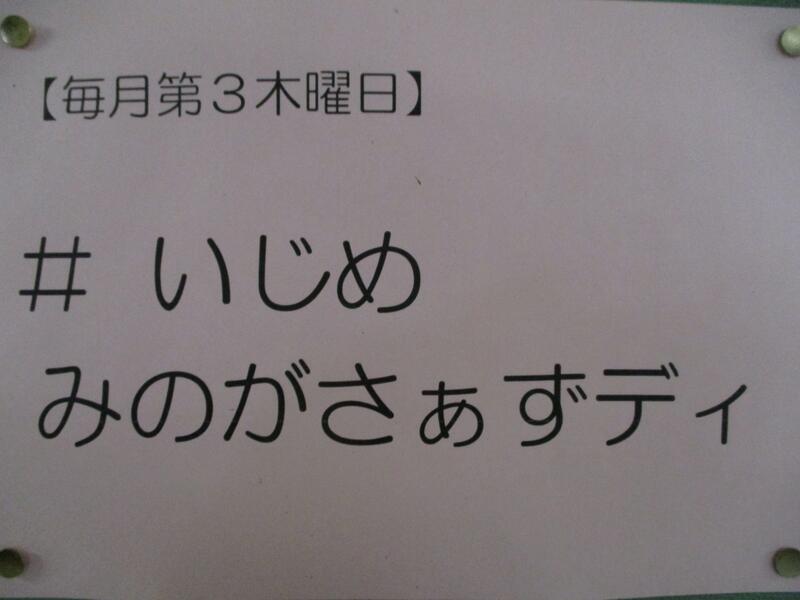 【毎月第３木曜日】
# いじめ
みのがさぁずディ